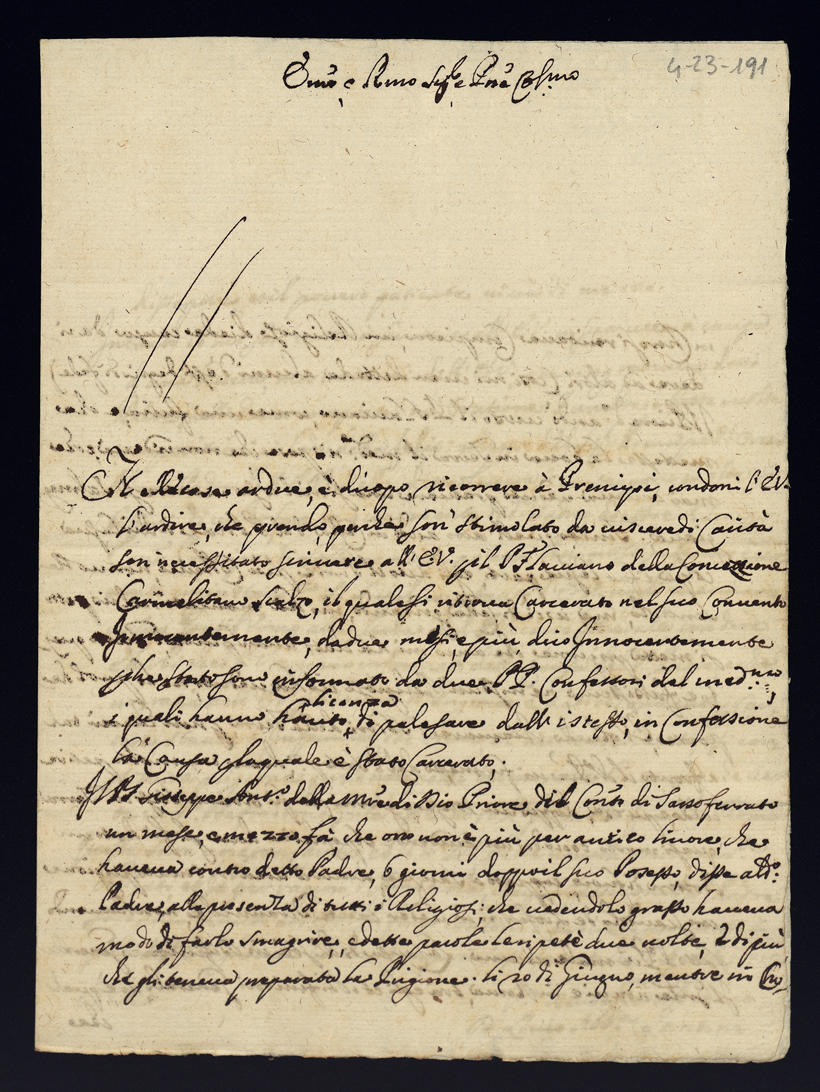 Emo e Rmo Sigre Pne Colmo
4-23-191
Nelle cose ardue, è d'uopo ricorrere à Prencipi, condoni l'E.V.
l'ardire, che prendo, perche son' stimolato da viscere di Carità
son necessitato scrivere all'E.V. p il P. Flaviano della Concezione
Carmelitano Scalzo, il quale si ritrova Carcerato nel suo Convento
Innocentemente, da due mesi, e più, dico Innocentemente
pche stato sono informato da due PP. Confessori del medmo,
i quali hanno havuto licenza di palesare dall'istesso, in Confessione
la Causa p la quale è stato Carcerato.
Il P. Giuseppe Ant.o della Mre di Dio Priore del Conto di Sassoferrato
un mese, e mezzo fà, che ora non è più per antico livore, che
haveva contro detto Padre, 6 giorni doppo il suo Possesso, disse a do.
Padre, alla presenza di tutti i Religiosi; che vedendolo grasso haveva
modo di farlo smagrire, e dette parole le ripetè due volte, e di più
che gli teneva preparata la Prigione. li 20 di Giugno, mentre in Cho-